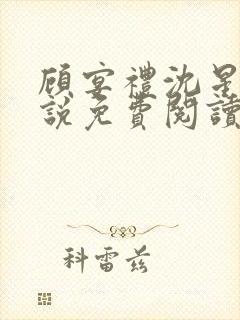 顾宴禮沈星
說免費閱讀
科雷兹